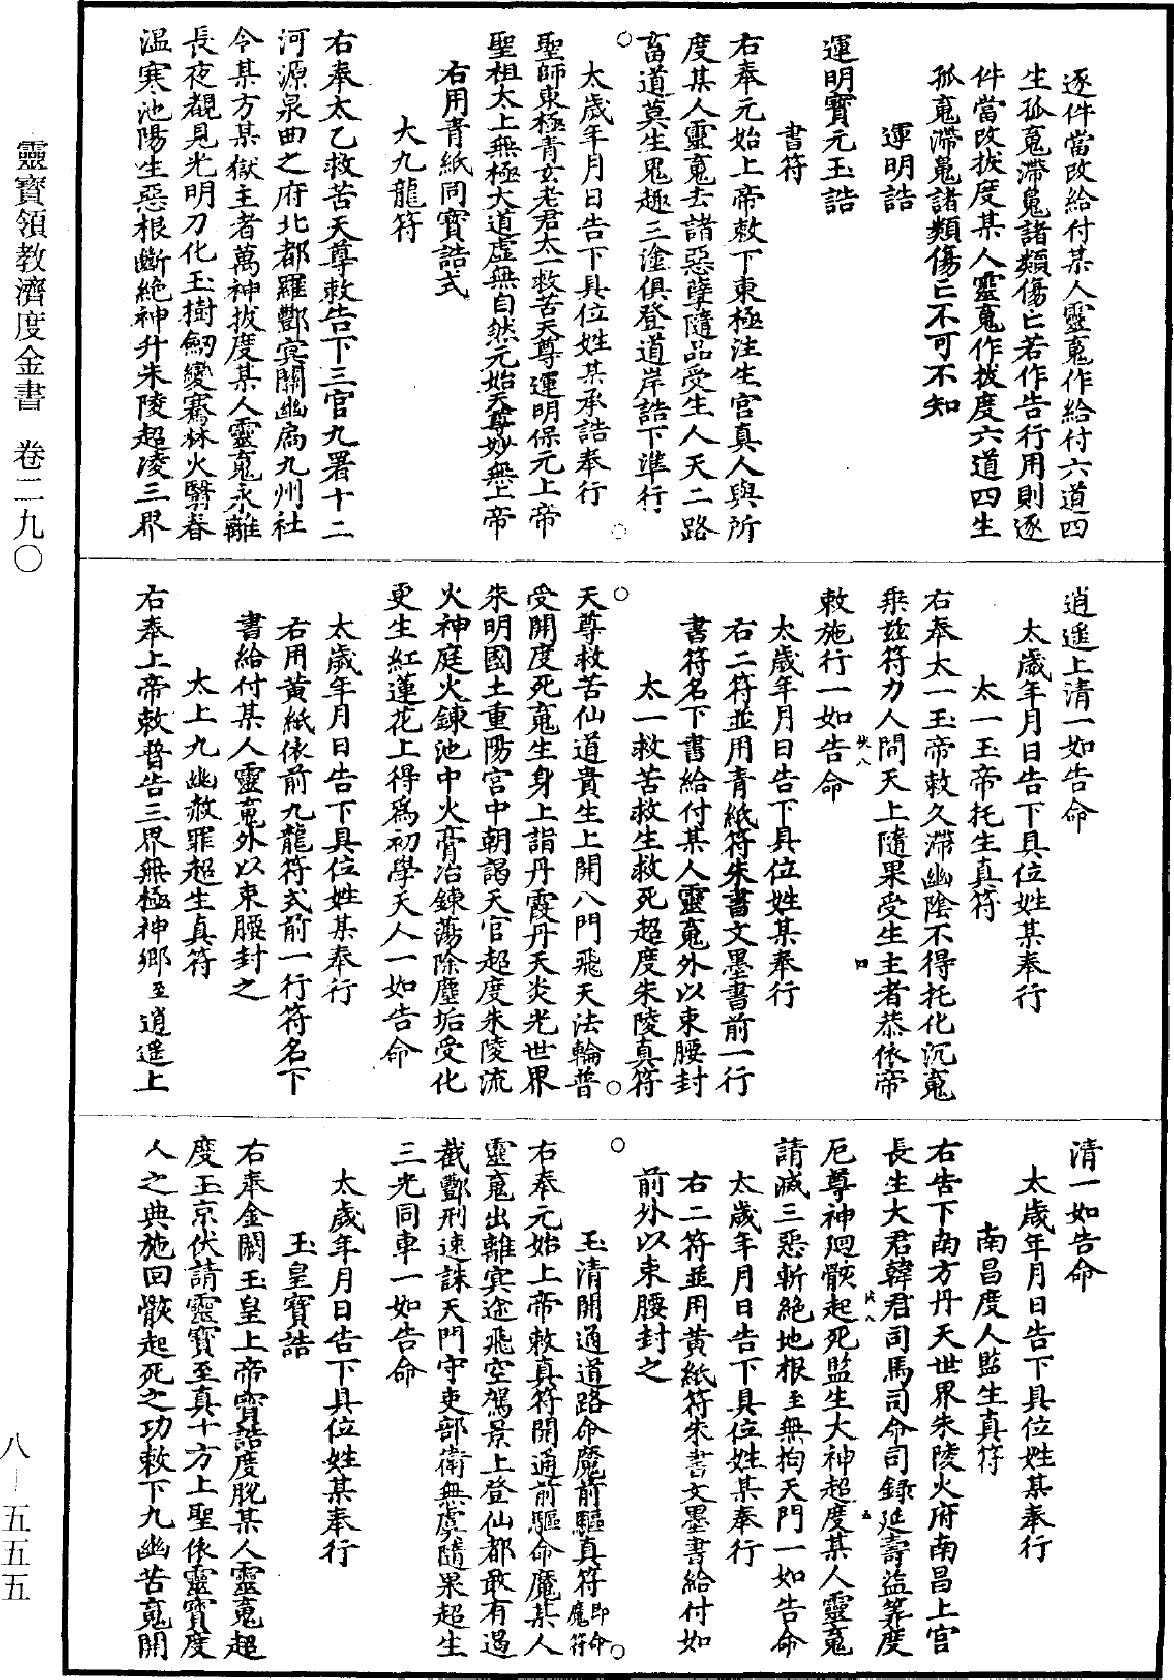 靈寶領教濟度金書　卷二九〇
逐件當改給付某人靈䰟作給付六道四
生孤䰟滯魄諸類傷亡若作告行用則逐
件當改拔度某人靈䰟作拔度六道四生
孤䰟滯魄諸類傷亡不可不知
運明誥
運明寶元玉誥
書符
右奉元始上帝敕下東極注生宮真人與所
度某人靈䰟去諸惡孽隨品受生人天二路
畜道莫生鬼趣三塗俱登道岸誥下準行
太歲年月日告下具位姓某承誥奉行
聖師東極青玄老君太一救苦天尊運明保元上帝
聖祖太上無極大道虛無自然元始天尊妙無上帝
右用青紙同寶誥式
大九龍符
右奉太乙救苦天尊敕告下三官九署十二
河源泉曲之府北都羅酆冥關幽扃九州社
令某方某獄主者萬神拔度某人靈䰟永離
長夜覩見光明刀化玉樹劒變騫林火翳春
溫寒池陽生惡根斷絕神升朱陵超凌三界
逍遙上清一如告命
太歲年月日告下具位姓某奉行
太一玉帝托生真符
右奉太一玉帝敕久滯幽陰不得托化沉䰟
乗茲符力人間天上隨果受生主者恭依帝
敕施行一如告命
太歲年月日告下具位姓某奉行
右二符並用青紙符朱書文墨書前一行
書符名下書給付某人靈䰟外以束腰封
太一救苦救生救死超度朱陵真符
天尊救苦仙道貴生上開八門飛天法輪普
受開度死䰟生身上詣丹霞丹天炎光世界
朱明國土重陽宮中朝謁天官超度朱陵流
火神庭火鍊池中火膏冶鍊蕩除塵垢受化
更生紅蓮花上得爲初學天人一如告命
太歲年月日告下具位姓某奉行
右用黃紙依前九龍符式前一行符名下
書給付某人靈䰟外以束腰封之
太上九幽赦罪超生真符
右奉上帝敕普告三界無極神鄉至逍遙上
清一如告命
太歲年月日告下具位姓某奉行
南昌度人監生真符
右告下南方丹天世界朱陵火府南昌上宮
長生大君韓君司馬司命司錄延壽益筭度
厄尊神迴骸起死監生大神超度某人靈䰟
請滅三惡斬絕地根至無拘天門一如告命
太歲年月日告下具位姓某奉行
右二符並用黃紙符朱書文墨書給付如
前外以束腰封之
玉清開通道路命魔前驅真符即命魔符
右奉元始上帝敕真符開通前驅命魔某人
靈䰟出離冥途飛空駕景上登仙都敢有遏
截酆刑速誅天門守吏部衛無虞隨果超生
三光同車一如告命
太歲年月日告下具位姓某奉行
玉皇寶誥
右奉金闕玉皇上帝寶誥度脫某人靈䰟超
度玉京伏請靈寶至真十方上聖依靈寶度
人之典施回骸起死之功敕下九幽苦䰟開
八—五五五